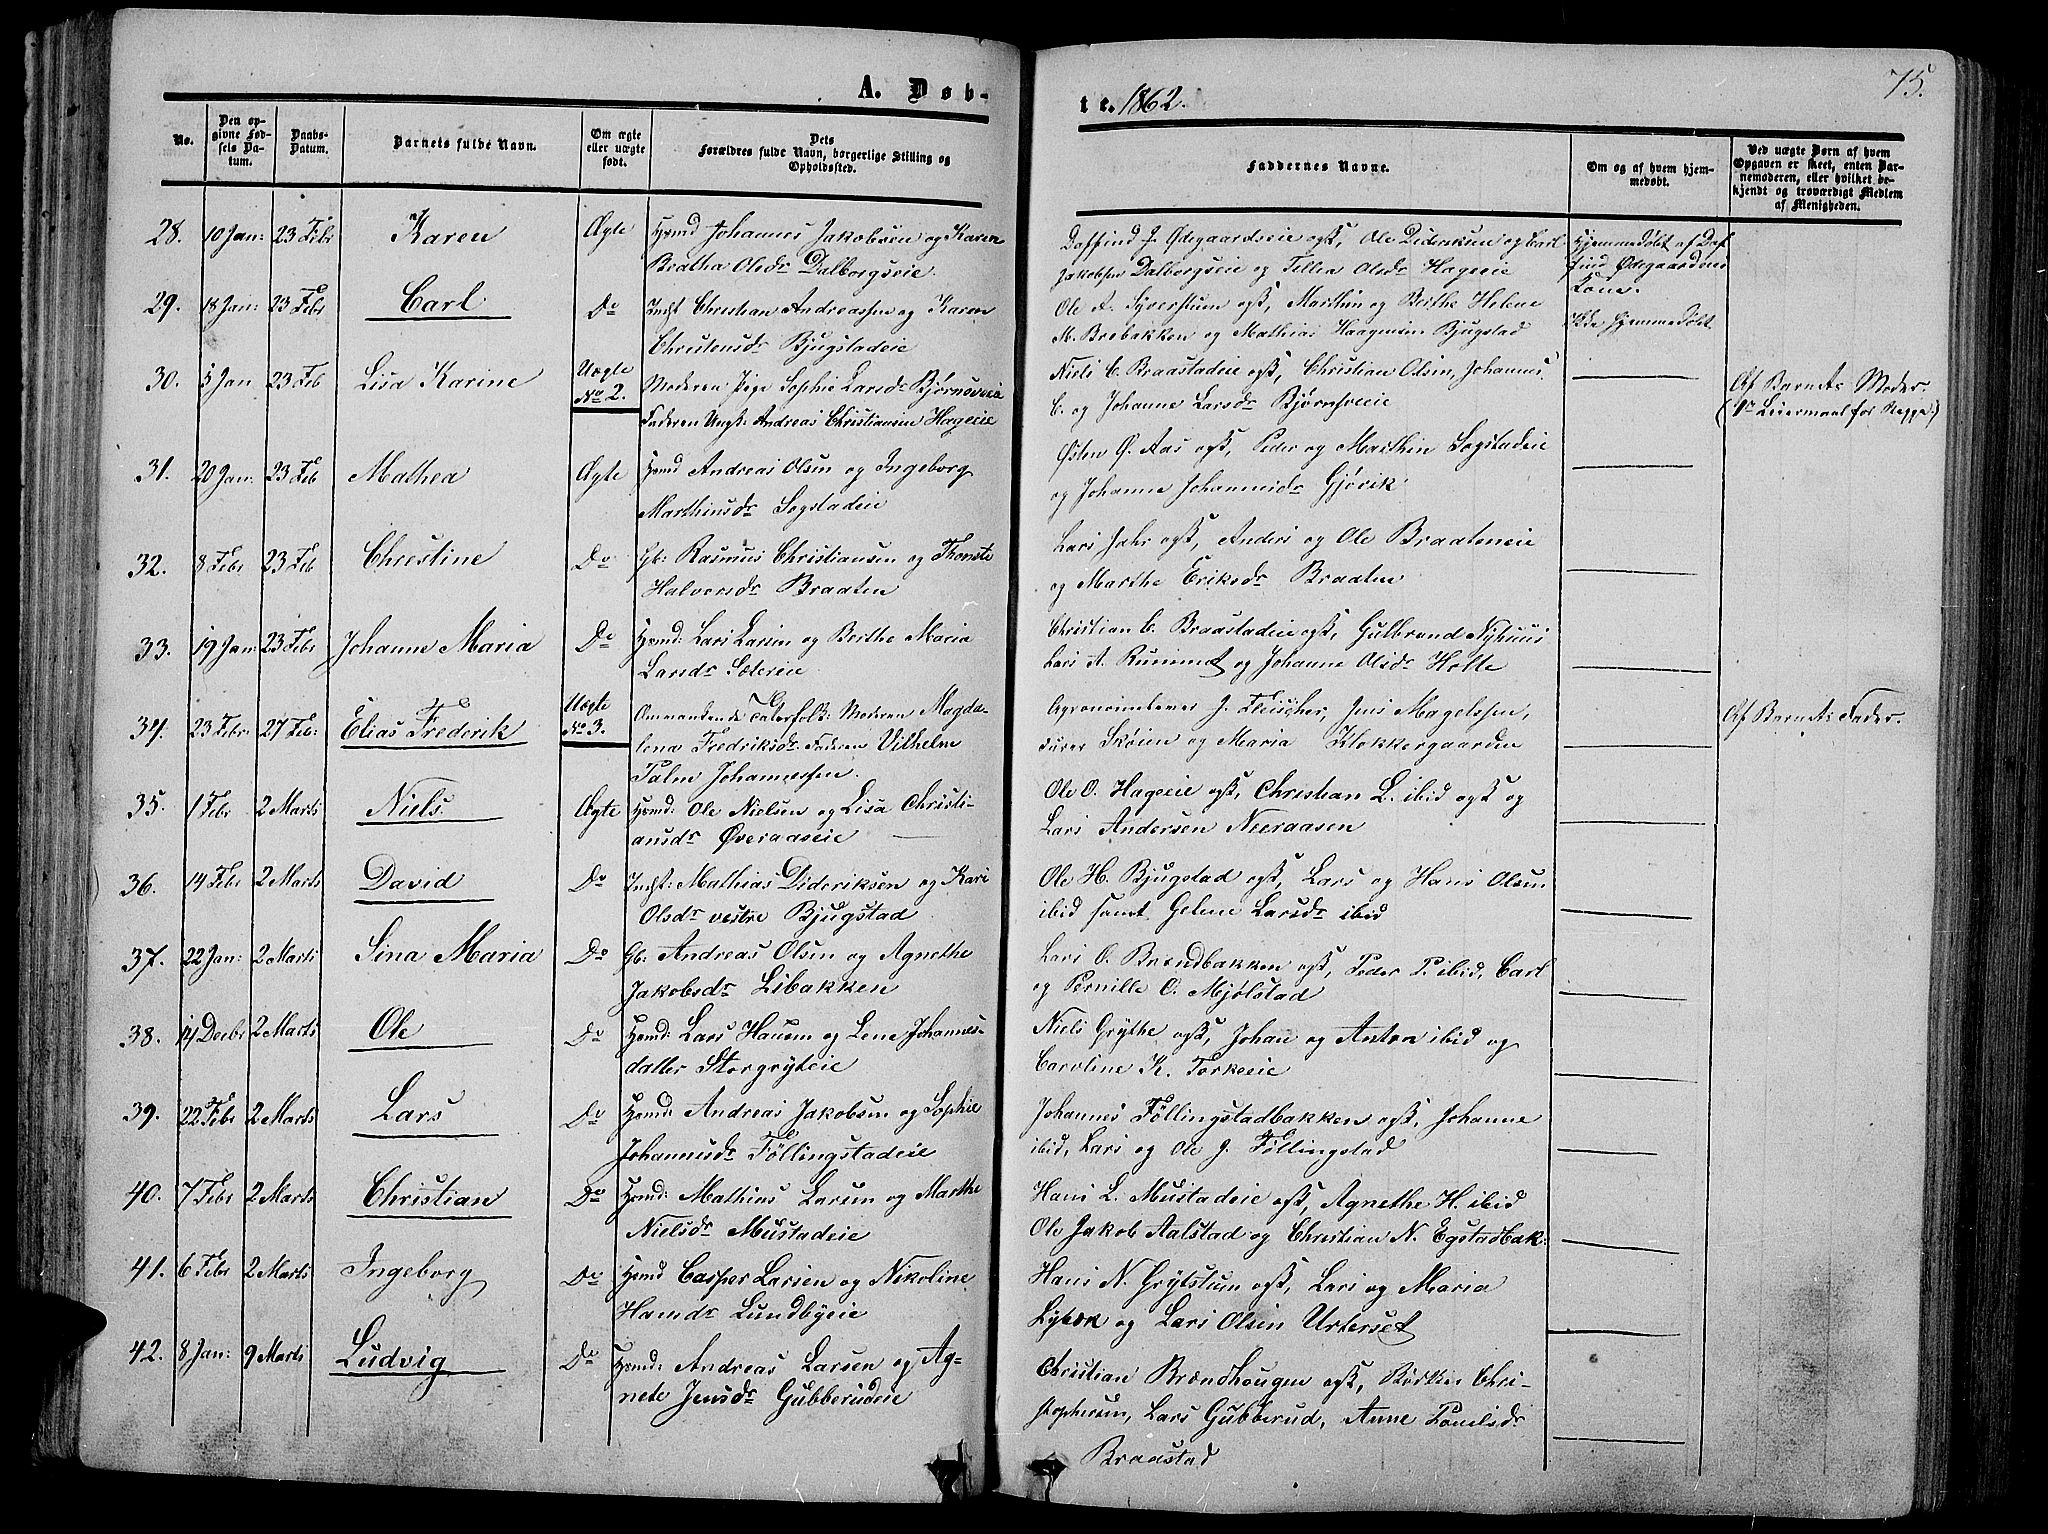 A. Døb-
te. 1862.
75.
No.
Den op-
givne Fød-
sels Da-
tum.
Daabs-
Datum.
Barnets fulde Navn.
Om ægte
eller uægte
født.
Dets
Forældres fulde Navn, borgerlige Stilling og
Opholdssted.
Faddernes Navne.
Om og af hvem hjem-
medøbt.
Ved uægte Børn af hvem
Opgaven er skeet, enten Bar-
nemoderen, eller hvilket be-
kjendt og troværdigt Medlem
af Menigheden.
28. 10 Jan: 23 Febr Karen Ægte Hmd Johannes Jakobsen og Karen
Beatha Olsdr Dalborgseie.
Daffind J. Ødegaardseie ogsk, Ole Dideriksen og Carl
Jakobsen Dalborgseie og Tellen Olsdr Hageeie
Hjemmedøbt af Daf
find Ødegaardens
Kone.
29. 18 Jan: 23 Febr Carl Do Indst Christian Andreassen og Karen
Christensdr Bjugstadeie
Ole A. Syverstuen ogsk, Marthin og Berthe Helene
M. Brobakken og Mathias Haagensen Bjugstad
Ikke hjemmedøbt
30. 5 Jan 23 Feb Lisa Karine Uægte
No 2. Moderen Pige Sophie Larsdr Bjørnsveie
Faderen Ungk: Andreas Christiansen Hageeie
Niels C. Braastadeie ogsk, Christian Olsen, Johannes
C. og Johanne Larsdr Bjørnsveie
Af Barnets Moder.
(1ste Leiermaal for Begge.)
31. 20 Jan: 23 Feb Mathea Ægte Hmd Andreas Olsen og Ingeborg
Marthinsdr Sogstadeie
Østen Ø. Aas ogsk, Peder og Marthin Sogstadeie
og Johanne Johannesdr Gjøvik
32. 8 Febr 23 Feb Christine Do Gb: Rasmus Christiansen og Thonste
Halvorsdr Braaten
Lars Jahr ogsk, Anders og Ole Braateneie
og Marthe Eriksdr Braaten
33. 19 Jan: 23 Febr Johanne Maria Do Hmd: Lars Larsen og Berthe Maria
Larsdr Sætereie
Christian C. Braastadeie ogsk, Gulbrand Nyhuus
Lars A. Rummet og Johanne Olsdr Holte
34. 23 Febr. 27 Feb: Elias Frederik Uægte
No 3. Omvankende Taterfolk: Moderen Magda-
lena Fredriksdr. Faderen Vilhelm
Palm Johannessen.
Agronomelever J. Fleischer, Jens Magelssen,
Skøien og Maria Klokkergaarden
Af Barnets Fader.
35. 1 Febr 2 Marts Niels Ægte Hmd: Ole Nielsen og Lisa Christi-
ansdr Øveraaseie
Ole O. Hageeie ogsk, Christian L. ibid ogsk og
Lars Andersen Neeraasen
36. 14 Febr 2 Marts David Do Indst: Mathias Dideriksen og Kari
Olsdr vestre Bjugstad
Ole H. Bjugstad ogsk, Lars og Hans Olsen
ibid samt Helene Larsdr ibid
37. 22 Jan: 2 Marts Sina Maria Do Gb: Andreas Olsen og Agnethe
Jakobsdr Libakken
Lars O. Brændbakken ogsk, Peder P. ibid, Carl
og Pernille O. Mjølstad
38. 14 Decbr 2 Marts Ole Do Hmd: Lars Hansen og Lene Johannes-
datter Storgryteie
Niels Grythe ogsk, Johan og Anton ibid og
Caroline K. Torkeeie
39. 22 Febr 2 Marts Lars Do Hmd: Andreas Jakobsen og Sophie
Johannesdr Føllingstadeie
Johannes Føllingstadbakken ogsk, Johanne
ibid, Lars og Ole J. Føllingstad
40. 7 Febr 2 Marts Christian Do Hmd: Mathias Larsen og Marthe
Nielsdr Mustadeie
Hans L. Mustadeie ogsk, Agnethe H. ibid
Ole Jakob Aalstad og Christian N. Egstadbak:
41. 6 Febr 2 Marts Ingeborg Do Hmd Casper Larsen og Nikoline
Hansdr Lundbyeie
Hans N. Grytstuen ogsk, Lars og Maria
Lybæk og Lars Olsen Urterset
42. 8 Jan: 9 Marts Ludvig Do Hmd: Andreas Larsen og Ag-
nete Jensdr Gubberudeie
Christian Brændhougen ogsk, Børkin Chri-
stophersen, Lars Gubberud, Anne Poulsdr
Braastad